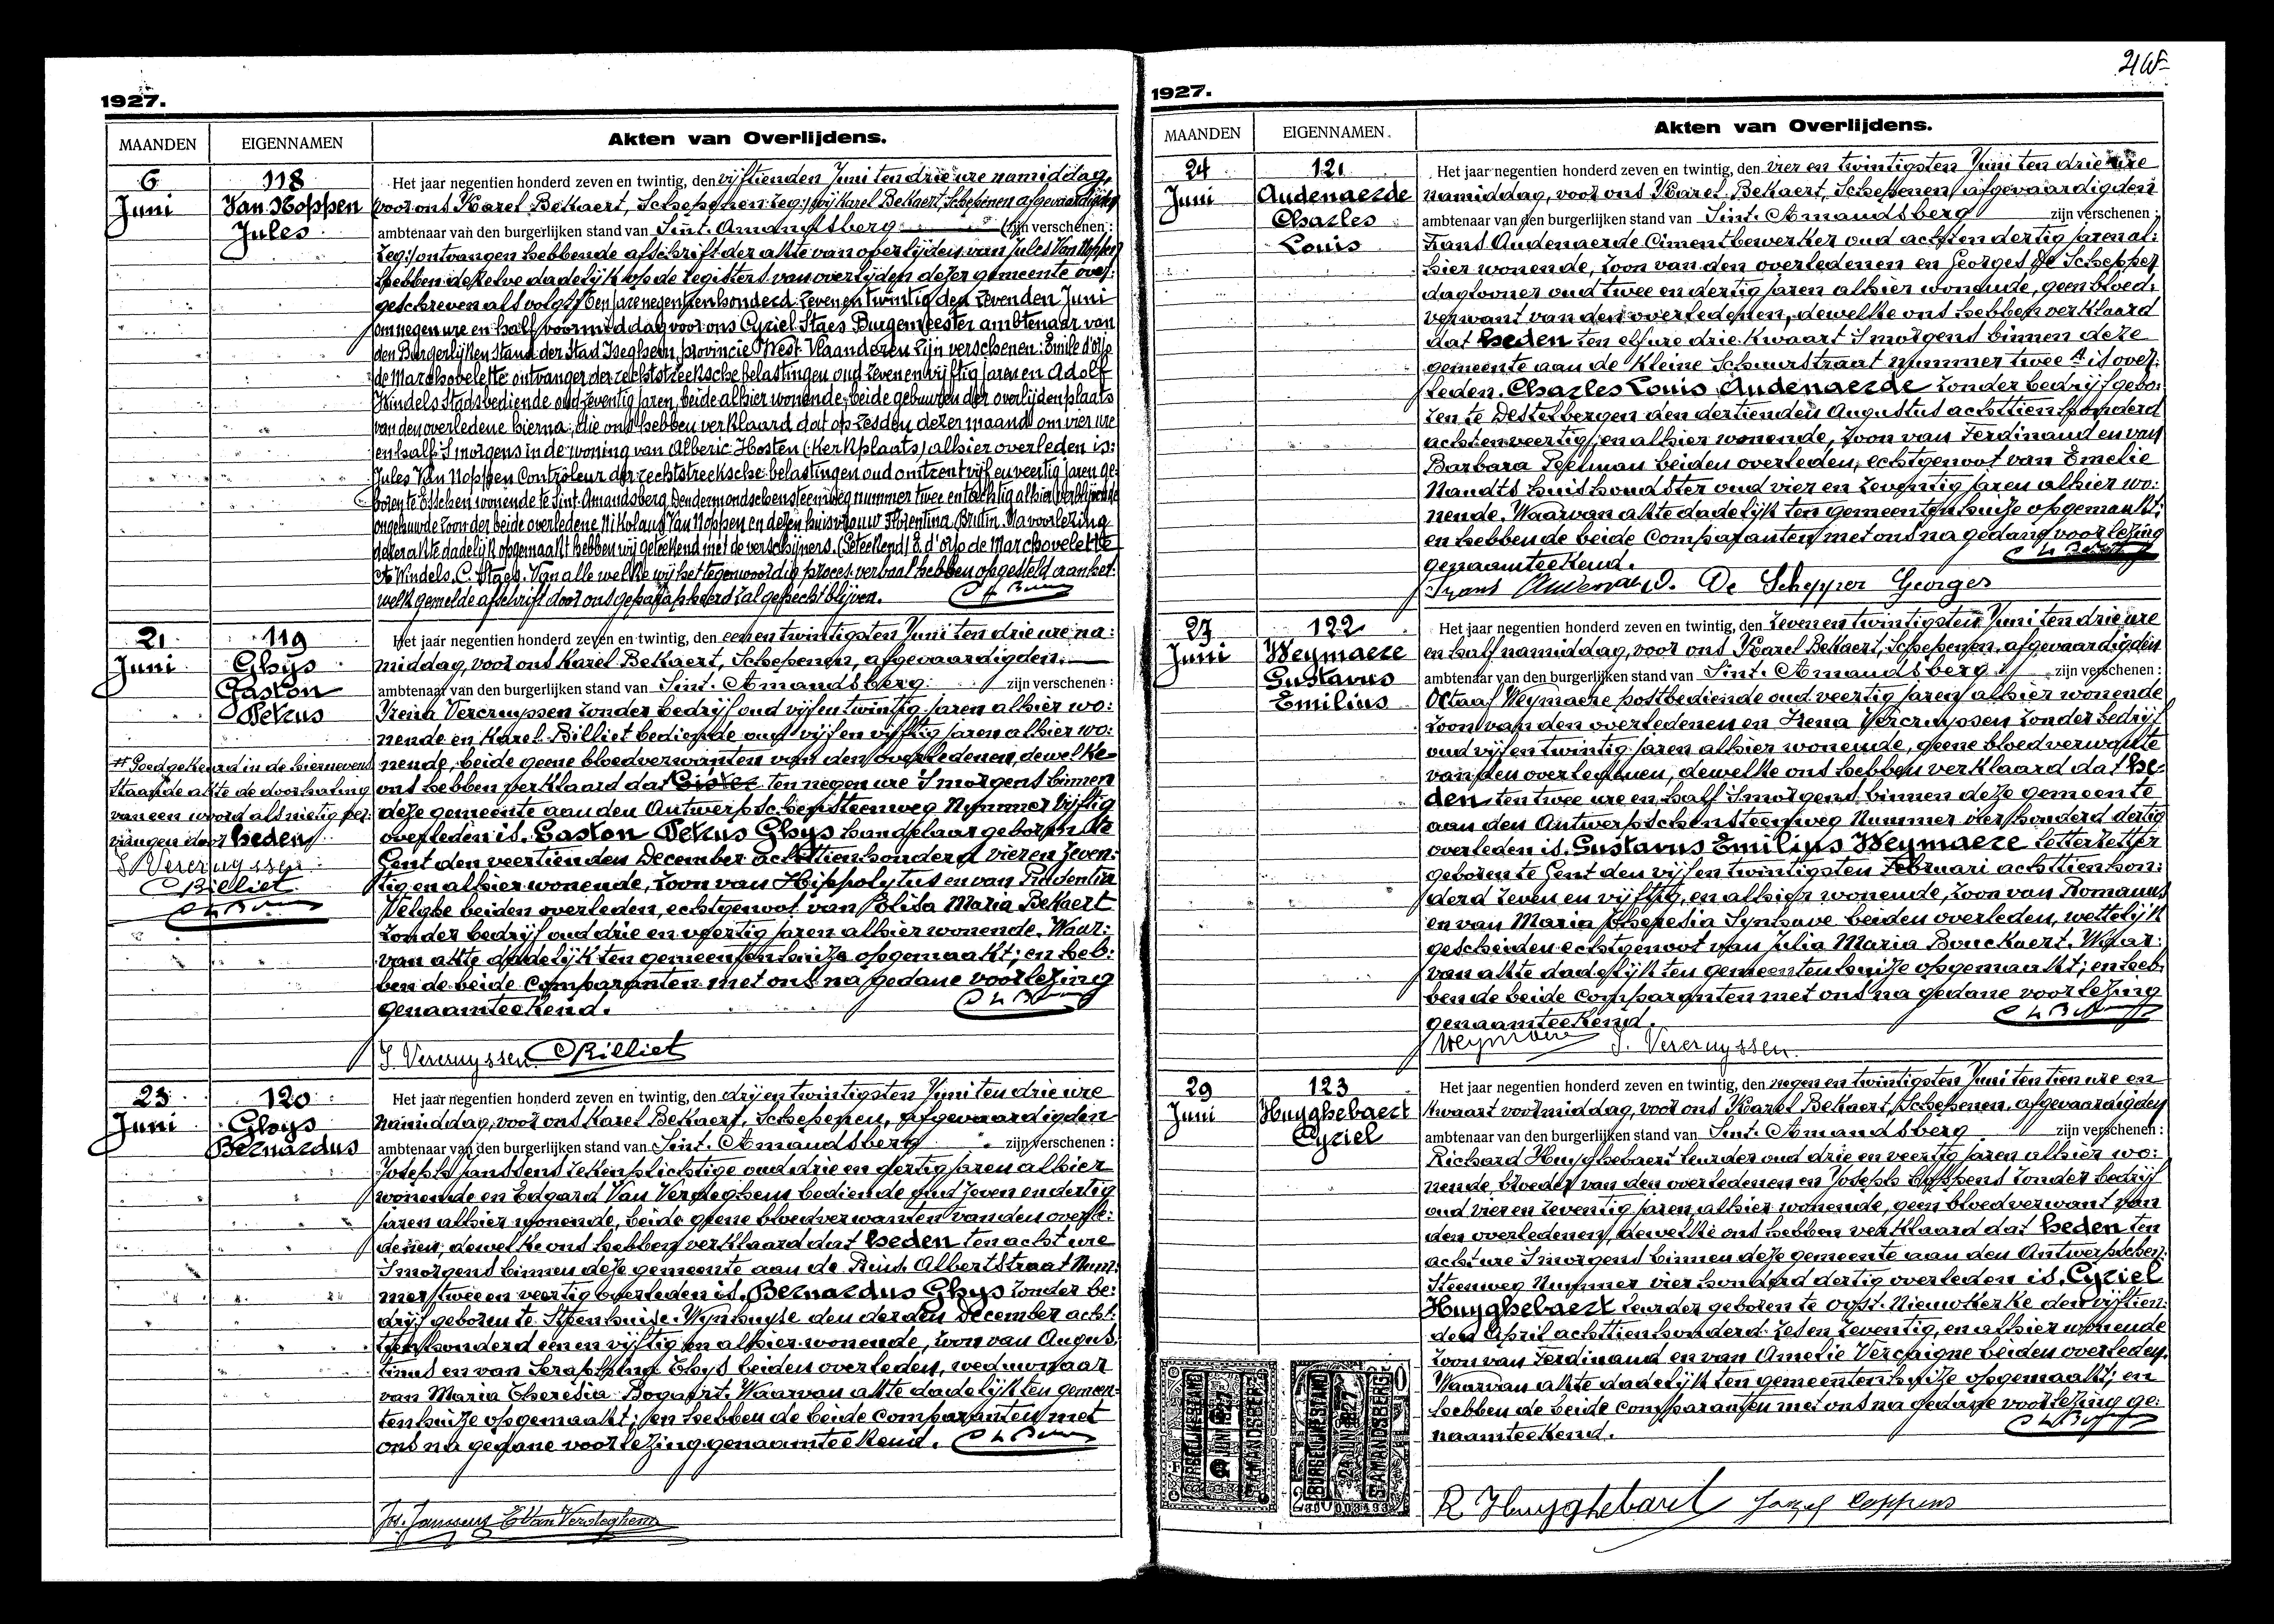 1927.
MAANDEN
EIGENNAMEN
Akten van Overlijdens.
6
Juni
118
Van Noppen
Jules
Het jaar negentien honderd zeven en twintig, den vijftienden Juni ten drie ure namiddag,
voor ons Karel Bekaert, Schepenen zeg: wij Karel Bekaert, Schepenen afgevaardigden
ambtenaar van den burgerlijken stand van Sint. Amandsberg (zijn verschenen:
zeg: ontvangen hebbende afschrift der akte van overlijden van Jules Van Noppen
hebben dezelve dadelijk op de registers van overlijden dezer gemeente over:
geschreven als volgt: Ten jare negentienhonderd zeven en twintig den zevenden Juni
om negen ure en half voormiddag voor ons Cyriel Staes Burgemeester ambtenaar van
den Burgerlijken Stand der Stad Iseghem, provincie West Vlaanderen zijn verschenen: Emile d'Orjo
de Marchovelette ontvanger der rechtstreeksche belastingen oud zeven en vijftig jaren en Adolf
Windels Stadsbediende oud zeventig jaren, beide alhier wonende, beide gebuuren der overlijdenplaats
van den overledene hierna, die ons hebben verklaard dat op zesden dezer maand om vier ure
en half 's morgens in de woning van Alberic Hosten (Kerkplaats) alhier overleden is:
Jules Van Noppen Controleur der rechtstreeksche belastingen oud omtrent vijf en veertig jaren ge-
boren te Esschen wonende te Sint-Amandsberg, Dendermondschensteenweg nummer twee en tachtig alhier verblijvende
ongehuwde zoon der beide overledene Nikolaus Van Noppen en dezen huisvrouw Florentina Brutin. Na voorlezing
dezer akte dadelijk opgemaakt hebben wij geteekend met de verschijners. (Geteekend) E. d'Orjo de Marchovelette
A. Windels, C. Staes. Van alle welke wij het tegenwoordig proces-verbaal hebben opgesteld aan het:
welk gemelde afschrift door ons geparapheerd zal gehecht blijven.
21
Juni
119
Ghys
Gaston
Petrus
# Goedgekeurd in de hiernevens
staande akte de doorhaling
van een woord als nietig ver:
vangen door heden
I. Vercruyssen
C Billiet
Het jaar negentien honderd zeven en twintig, den eenen twintigsten Juni ten drie ure na:
middag, voor ons Karel Bekaert, Schepenen, afgevaardigden.
ambtenaar van den burgerlijken stand van Sint. Amandsberg. zijn verschenen:
Irena Vercruyssen zonder bedrijf oud vijf en twintig jaren alhier wo:
nende en Karel Billiet bediende oud vijf en vijftig jaren alhier wo:
nende, beide geene bloedverwanten van den overledenen, dewelke
ons hebben verklaard dat gister ten negen ure 's morgens binnen
deze gemeente aan den Antwerpschensteenweg Nummer vijftig
overleden is. Gaston Petrus Ghys handelaar geboren te
Gent den veertienden December achttienhonderd vier en zeven:
tig en alhier wonende, zoon van Hippolytus en van Prudentia
Velghe beiden overleden, echtgenoot van Polisa Maria Bekaert
zonder bedrijf oud drie en veertig jaren alhier wonende. Waar:
van akte dadelijk ten gemeentenhuize opgemaakt; en heb:
ben de beide comparanten met ons na gedane voorlezing
genaamteekend.
I. Vercruyssen C Billiet
23
Juni
120
Ghys
Bernardus
Het jaar negentien honderd zeven en twintig, den drij en twintigsten Juni ten drie ure
namiddag, voor ons Karel Bekaert, Schepenen, afgevaardigden
ambtenaar van den burgerlijken stand van Sint. Amandsberg zijn verschenen:
Joseph Janssens rekenplichtige oud drie en dertig jaren alhier
wonende en Edgard Van Versteghem bediende oud zeven en dertig
jaren alhier wonende, beide geene bloedverwanten van den overle:
denen, dewelke ons hebben verklaard dat heden ten acht ure
's morgens binnen deze gemeente aan de Prins Albertstraat Num:
mer twee en veertig overleden is. Bernardus Ghys zonder be:
drijf geboren te Steenhuize-Wynhuyse den derden December acht:
tienhonderd een en vijftig en alhier wonende, zoon van Augus:
tinus en van Seraphina Thys beiden overleden, weduwnaar
van Maria Theresia Bogaert. Waarvan akte dadelijk ten gemeen-
tenhuize opgemaakt; en hebben de beide comparanten met
ons na gedane voorlezing genaamteekend.
Jos. Janssens E Van Versteghem
1927.
MAANDEN
EIGENNAMEN.
Akten van Overlijdens.
24
Juni
121
Audenaerde
Charles
Louis
Het jaar negentien honderd zeven en twintig, den vier en twintigsten Juni ten drie ure
namiddag, voor ons Karel Bekaert, Schepenen, afgevaardigden
ambtenaar van den burgerlijken stand van Sint. Amandsberg zijn verschenen:
Frans Audenaerde Cimentbewerker oud acht en dertig jaren al:
hier wonende, zoon van den overledenen en Georges De Schepper
daglooner oud twee en dertig jaren alhier wonende, geen bloed:
verwant van den overledenen, dewelke ons hebben verklaard
dat heden ten elf ure drie kwaart 's morgens binnen deze
gemeente aan de Kleine Schuurstraat nummer twee A is over:
leden. Charles Louis Audenaerde zonder bedrijf gebo:
ren te Destelbergen den dertienden Augustus achttienhonderd
acht en veertig, en alhier wonende, zoon van Ferdinand en van
Barbara Peelman beiden overleden, echtgenoot van Emelie
Nandts huishoudster oud vier en zeventig jaren alhier wo:
nende. Waarvan akte dadelijk ten gemeentenhuize opgemaakt;
en hebben de beide comparanten met ons na gedane voorlezing
genaamteekend.
Frans Audenaerde. De Schepper Georges
27
Juni
122
Weymaere
Gustavus
Emilius
Het jaar negentien honderd zeven en twintig, den zeven en twintigsten Juni ten drie ure
en half namiddag, voor ons Karel Bekaert, Schepenen, afgevaardigden
ambtenaar van den burgerlijken stand van Sint. Amandsberg zijn verschenen:
Octaaf Weymaere postbediende oud veertig jaren alhier wonende
zoon van den overledenen en Irena Vercruyssen zonder bedrijf
oud vijf en twintig jaren alhier wonende, geene bloedverwante
van den overledenen, dewelke ons hebben verklaard dat he-
den ten twee ure en half 's morgens binnen deze gemeente
aan den Antwerpschensteenweg Nummer vier honderd dertig
overleden is. Gustavus Emilius Weymaere letterzetter
geboren te Gent den vijf en twintigsten Februari achttienhon:
derd zeven en vijftig, en alhier wonende, zoon van Romanus
en van Maria Theresia Synhave beiden overleden, wettelijk
gescheiden echtgenoot van Julia Maria Bouckaert. Waar:
van akte dadelijk ten gemeentenhuize opgemaakt; en heb:
ben de beide comparanten met ons na gedane voorlezing
genaamteekend.
Weymaere I. Vercruyssen.
29
Juni
123
Huyghebaert
Cyriel
Het jaar negentien honderd zeven en twintig, den negen en twintigsten Juni ten tien ure en
kwaart voormiddag, voor ons Karel Bekaert, Schepenen, afgevaardigden
ambtenaar van den burgerlijken stand van Sint. Amandsberg zijn verschenen:
Richard Huyghebaert leurder oud drie en veertig jaren alhier wo:
nende, broeder van den overledenen en Joseph Coppens zonder bedrijf
oud vier en zeventig jaren, alhier wonende, geen bloedverwant van
den overledenen, dewelke ons hebben verklaard dat heden ten
acht ure 's morgens binnen deze gemeente aan den Antwerpschen
Steenweg Nummer vier honderd dertig overleden is. Cyriel
Huyghebaert leurder geboren te Oost-Nieuwkerke den vijftien:
den April achttienhonderd zes en zeventig, en alhier wonende
zoon van Ferdinand en van Amelie Vercaigne beiden overleden.
Waarvan akte dadelijk ten gemeentenhuize opgemaakt; en
hebben de beide comparanten met ons na gedane voorlezing ge:
naamteekend.
BURGERLIJKE STAND
JUNI 1927
ST AMANDSBERG
BURGERLIJKE STAND
24 JUNI 1927
ST AMANDSBERG
R. Huyghebaert Jozef Coppens